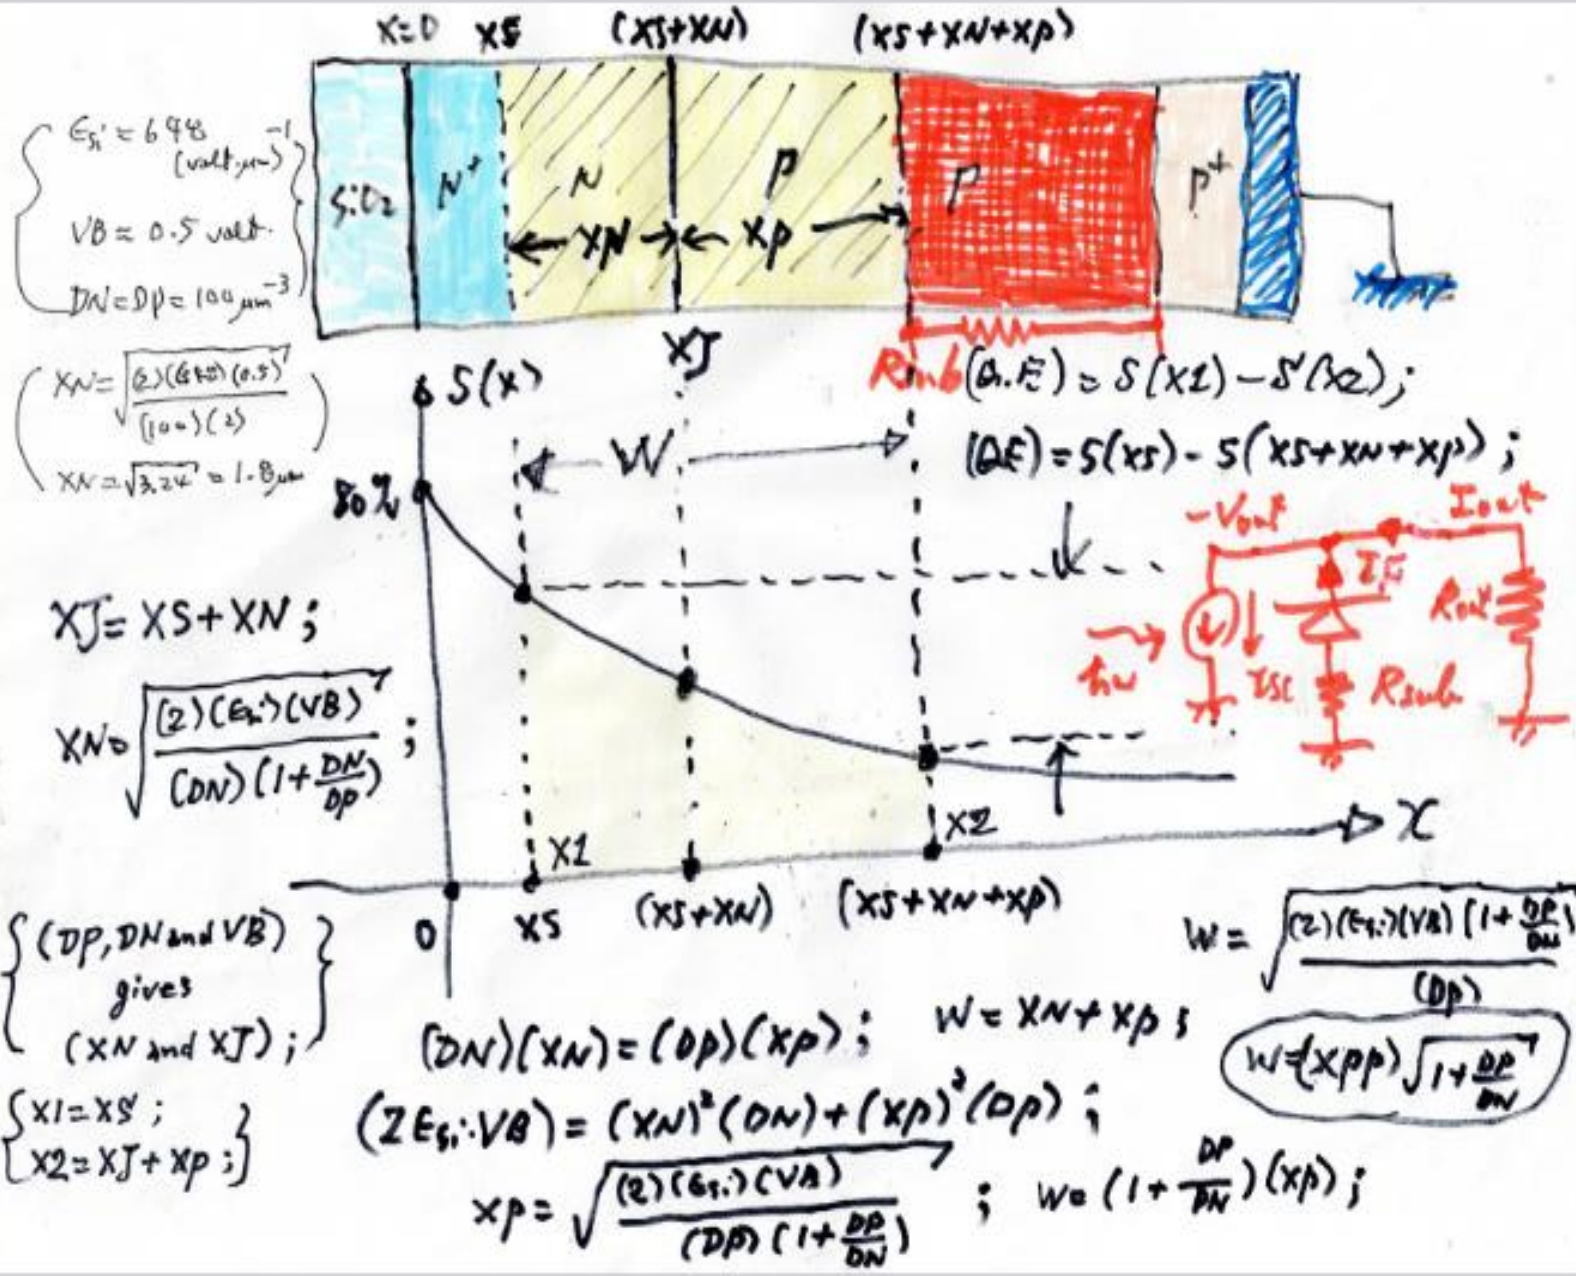 X=0 XS (XS+XN) (XS+XN+XP)
SiO2 N+ N P P P+
XN XP
ESi = 648
(volt·μm)^-1
VB = 0.5 volt.
DN=DP=100 μm^-3
XN=√
(100)(2)
XN=√3.24 = 1.8μm
XJ
Rsub
S(X)
80%
W
(Q.E) = S(X1) - S(X2);
(QE) = S(XS) - S(XS+XN+XP);
-Vout Iout
hν ISC Rsub Rout
XJ= XS+XN;
XN=√(2)(ESi)(VB) / (DN)(1+DN/DP) ;
X1 X2 X
0 XS (XS+XN) (XS+XN+XP)
{(DP, DN and VB)
gives
(XN and XJ);}
{X1=XS;
X2=XJ+XP;}
(DN)(XN)=(DP)(XP); W=XN+XP;
(2ESi·VB) = (XN)²(DN)+(XP)²(DP);
XP=√(2)(ESi)(VB) / (DP)(1+DP/DN) ; W=(1+DP/DN)(XP);
W=√(2)(ESi)(VB)(1+DP/DN) / (DP)
W=(XPP)√1+DP/DN